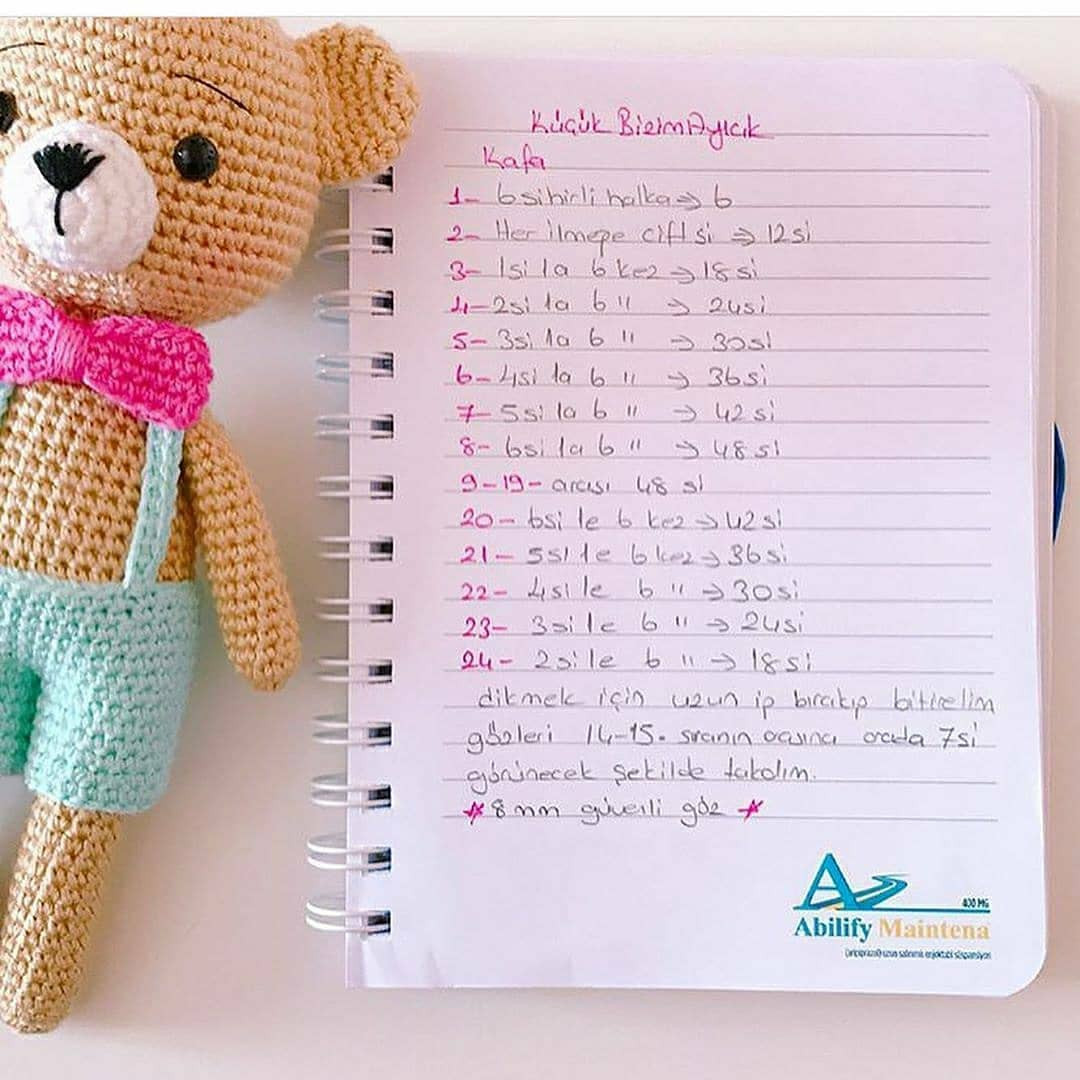 Küçük Bizim Ayıcık
Kafa
1- 6 sihirli halka → 6
2- Her ilmeğe çift si → 12 si
3- 1 si la 6 kez → 18 si
4- 2si la 6 " → 24si
5- 3si la 6 " → 30si
6- 4si la 6 " → 36si
7- 5si la 6 " → 42si
8- 6si la 6 " → 48si
9-19- arası 48 si
20- 6si le 6 kez → 42si
21- 5si le 6 kez → 36si
22- 4si le 6 " → 30si
23- 3si le 6 " → 24si
24- 2si le 6 " → 18si
dikmek için uzun ip bırakıp bitirelim
gözleri 14-15. sıranın arasına arada 7si
görünecek şekilde takalım.
* 8 mm güvenli göz *
400 MG
Abilify Maintena
(aripiprazol) uzun salınımlı enjektabl süspansiyon